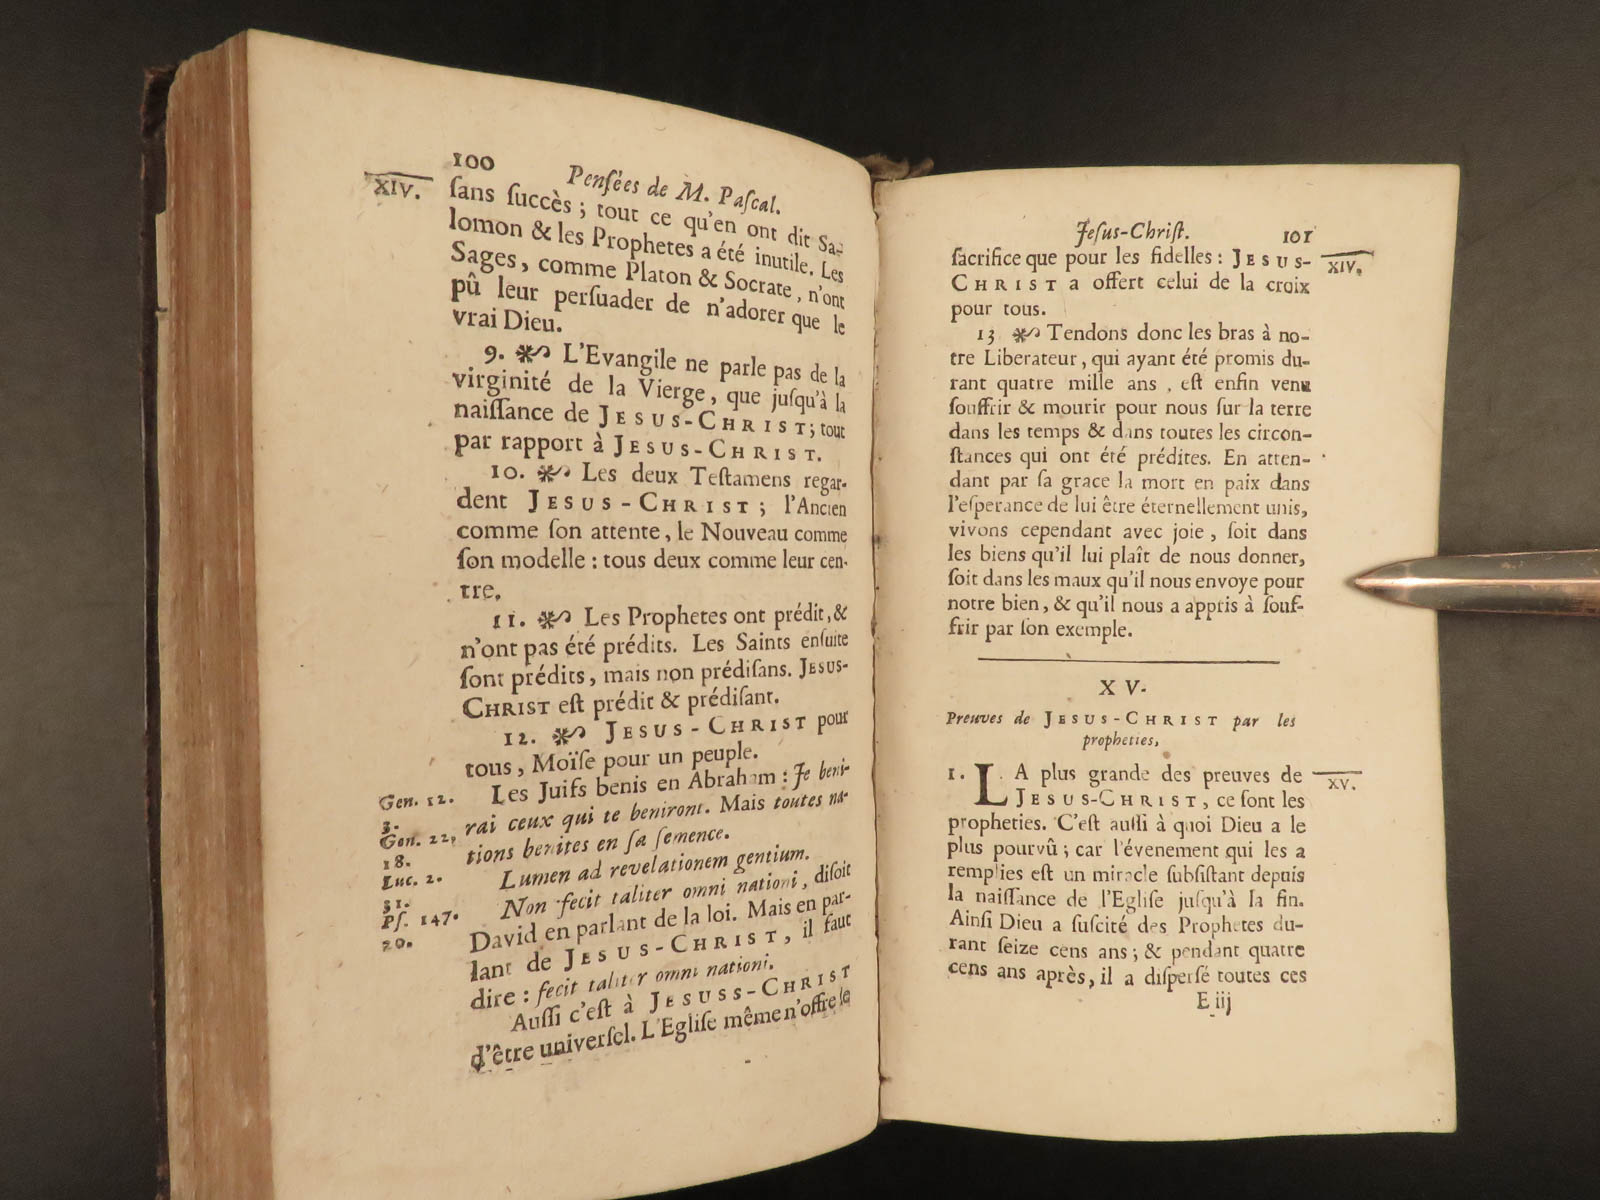 100
Pensées de M. Pascal.
XIV.
ſans ſuccès ; tout ce qu'en ont dit Sa-
lomon & les Prophetes a été inutile. Les
Sages, comme Platon & Socrate, n'ont
pû leur perſuader de n'adorer que le
vrai Dieu.
9. L'Evangile ne parle pas de la
virginité de la Vierge, que juſqu'à la
naiſſance de JESUS-CHRIST; tout
par rapport à JESUS-CHRIST.
10. Les deux Teſtamens regar-
dent JESUS-CHRIST ; l'Ancien
comme ſon attente, le Nouveau comme
ſon modelle : tous deux comme leur cen-
tre.
11. Les Prophetes ont prédit, &
n'ont pas été prédits. Les Saints enſuite
ſont prédits, mais non prédiſans. JESUS-
CHRIST eſt prédit & prédiſant.
12. JESUS-CHRIST pour
tous, Moïſe pour un peuple.
Gen. 12.
3.
Les Juifs benis en Abraham : Je beni-
rai ceux qui te beniront. Mais toutes na-
Gen. 22,
18.
tions benites en ſa ſemence.
Luc. 2.
31.
Lumen ad revelationem gentium.
Pſ. 147.
20.
Non fecit taliter omni nationi, diſoit
David en parlant de la loi. Mais en par-
lant de JESUS-CHRIST, il faut
dire : fecit taliter omni nationi.
Auſſi c'eſt à JESUSS-CHRIST
d'être univerſel. L'Egliſe même n'offre le
Jeſus-Chriſt. 101
XIV.
ſacrifice que pour les fidelles : JESUS-
CHRIST a offert celui de la croix
pour tous.
13 Tendons donc les bras à no-
tre Liberateur, qui ayant été promis du-
rant quatre mille ans, eſt enfin venu
ſouffrir & mourir pour nous ſur la terre
dans les temps & dans toutes les circon-
ſtances qui ont été prédites. En atten-
dant par ſa grace la mort en paix dans
l'eſperance de lui être éternellement unis,
vivons cependant avec joie, ſoit dans
les biens qu'il lui plaît de nous donner,
ſoit dans les maux qu'il nous envoye pour
notre bien, & qu'il nous a appris à ſouf-
frir par ſon exemple.
XV.
Preuves de JESUS-CHRIST par les
propheties,
XV.
1. LA plus grande des preuves de
JESUS-CHRIST, ce ſont les
propheties. C'eſt auſſi à quoi Dieu a le
plus pourvû ; car l'évenement qui les a
remplies eſt un miracle ſubſiſtant depuis
la naiſſance de l'Egliſe juſqu'à la fin.
Ainſi Dieu a ſuſcité des Prophetes du-
rant ſeize cens ans ; & pendant quatre
cens ans après, il a diſperſé toutes ces
E iij